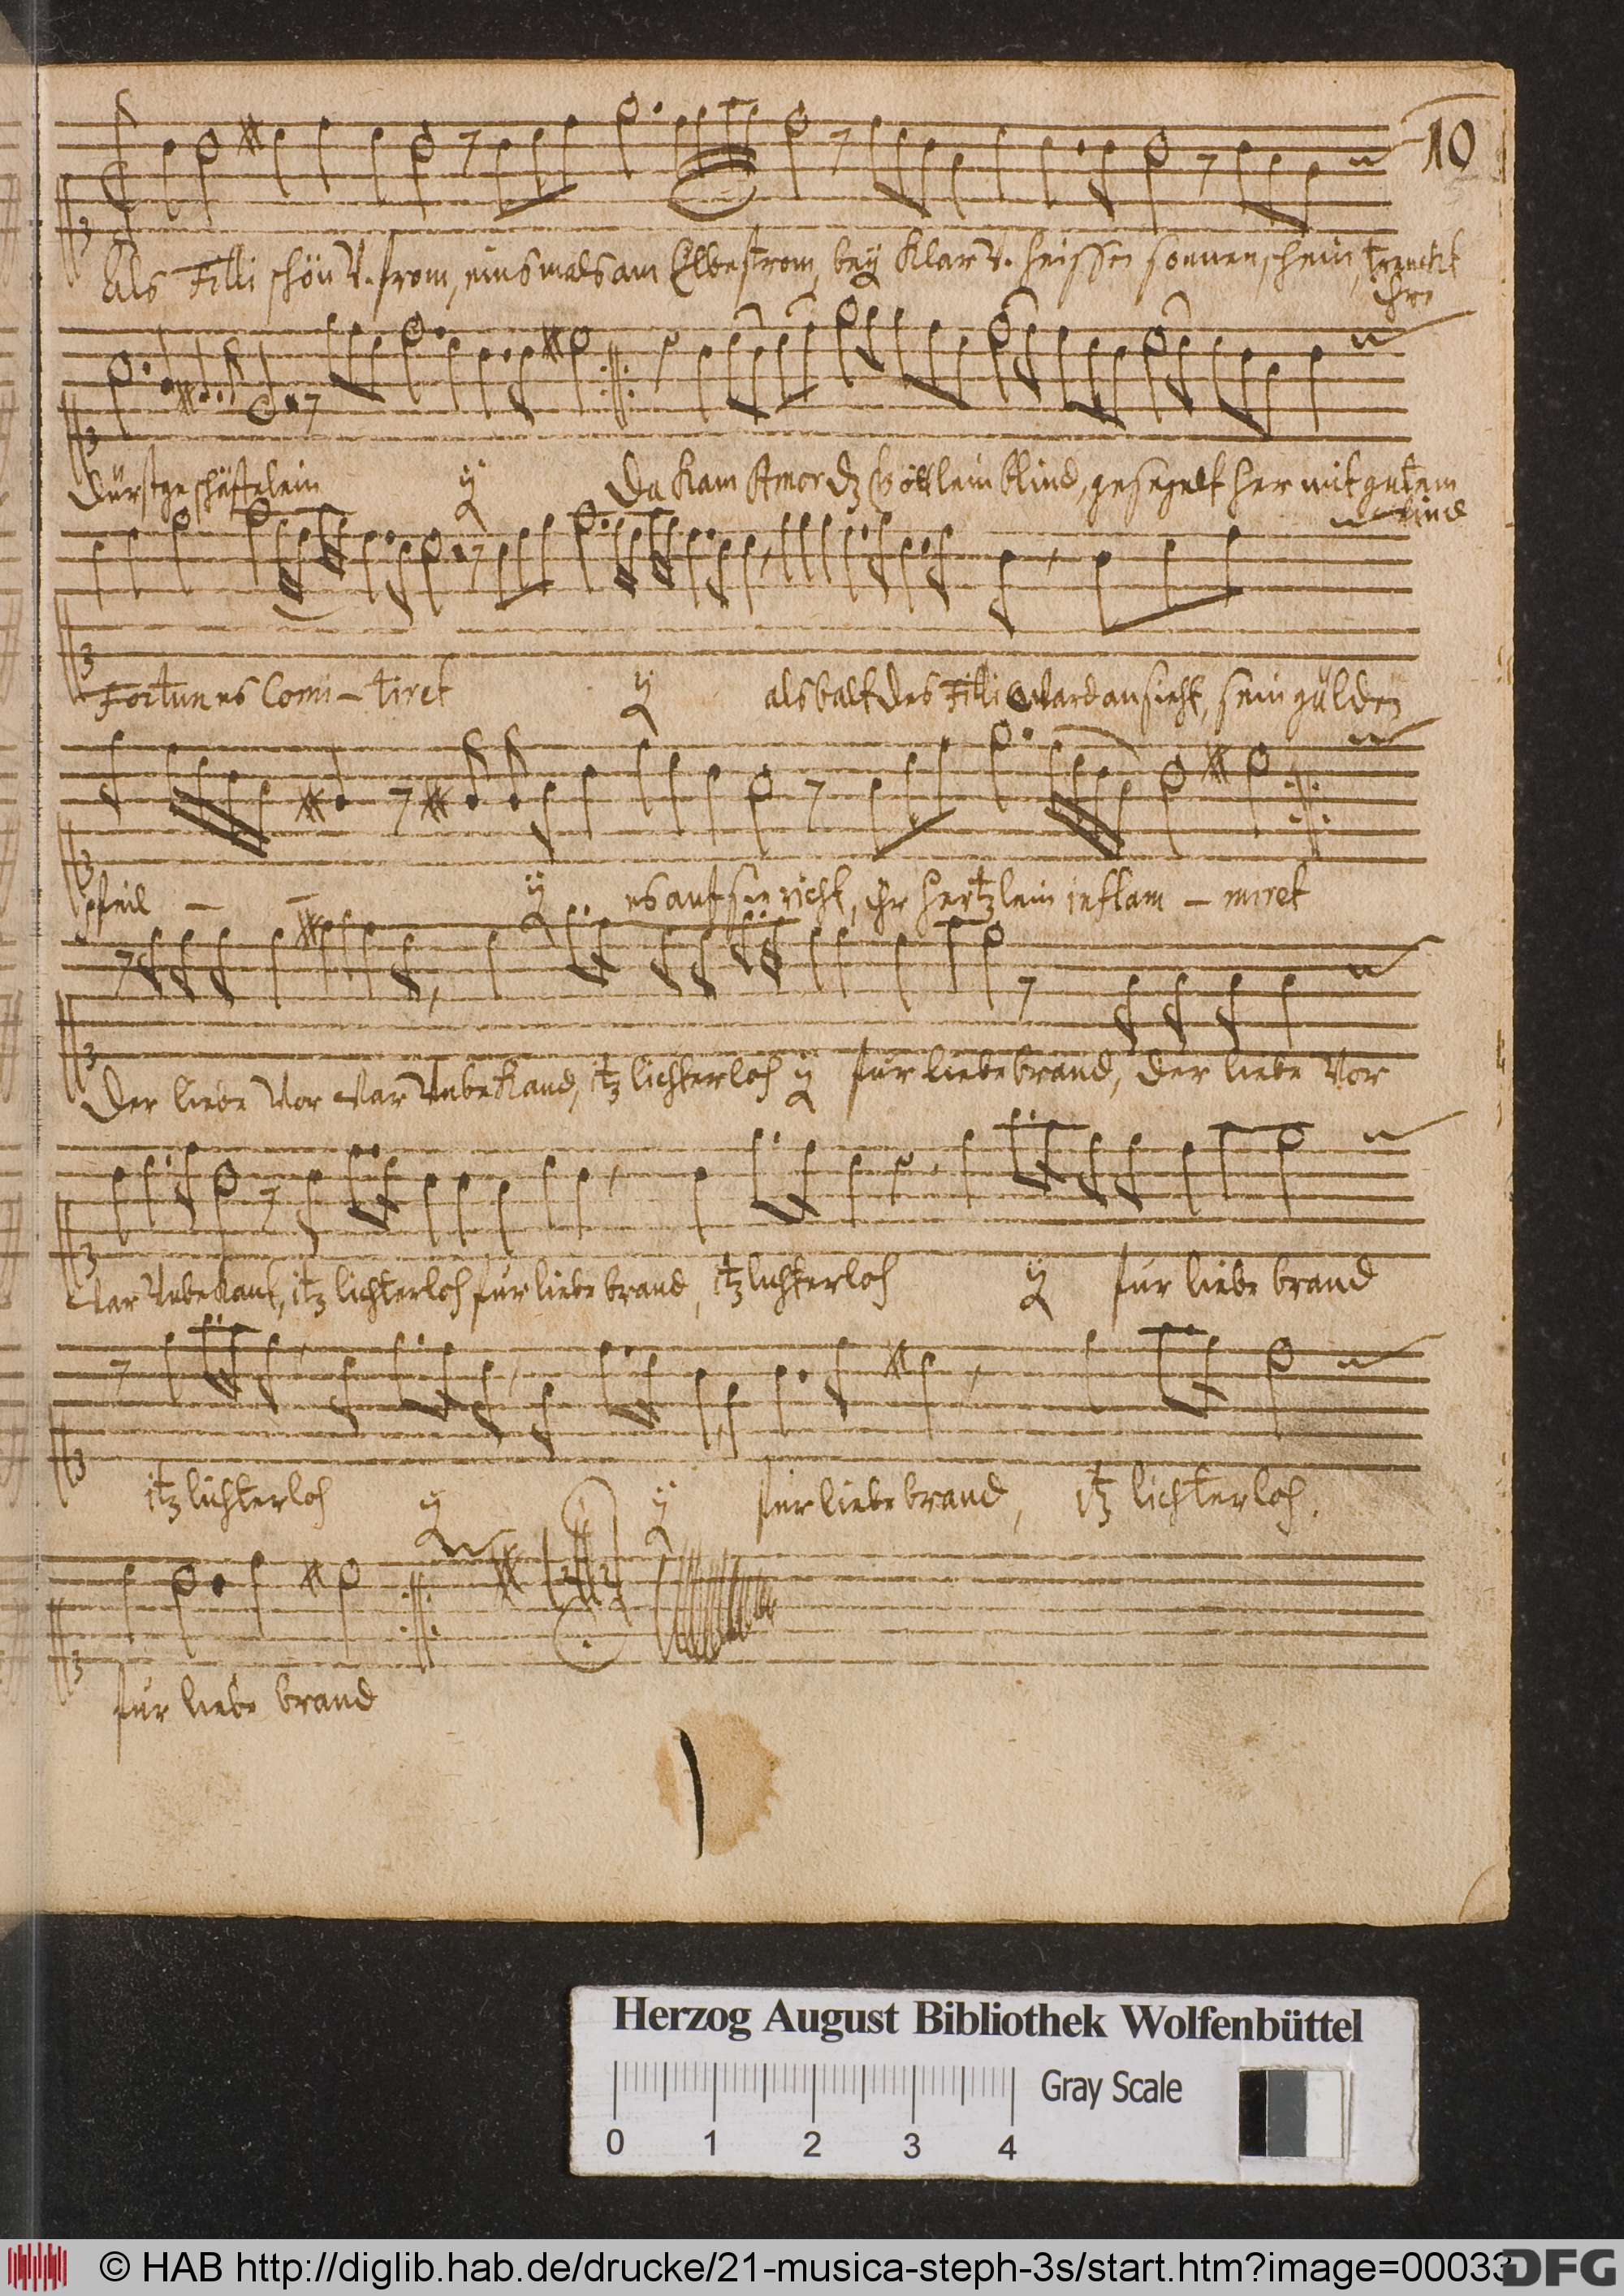 10
Als Filli schön V. from, einsmals am Elbestrom, beÿ klar V. heissen sonnenschein, trenckt
ihre
dürstge schäffelein ÿ Da kam Amor dz Göttlein blind, gesegelt her mit gutem
wind
Fortun es Comi – tiret ÿ alsbalt des Filli ward ansicht, sein gülden
pfeil – – ÿ es auf sie richt, ihr hertzlein inflam – miret
Der liebe vor war vnbekand, itz lichterloh ÿ fur liebe brand, der liebe vor
war vnbekant, itz lichterloh fur liebe brand, itz lichterloh ÿ fur liebe brand
itz lichterloh ÿ ÿ fur liebe brand, itz lichterloh.
fur liebe brand
Herzog August Bibliothek Wolfenbüttel
Gray Scale
0 1 2 3 4
© HAB http://diglib.hab.de/drucke/21-musica-steph-3s/start.htm?image=00033
DFG